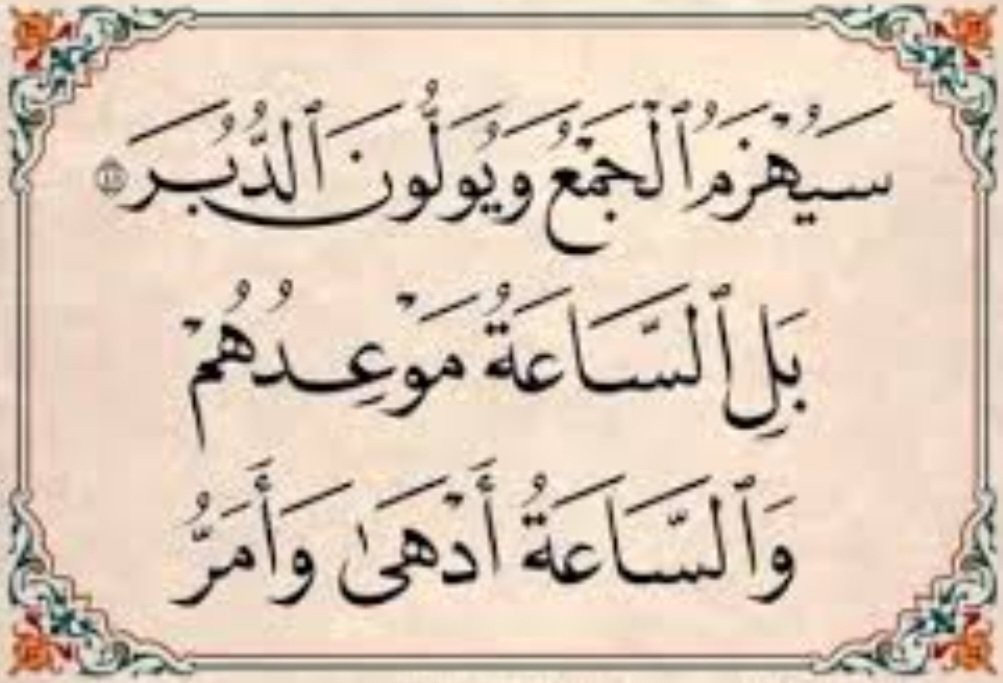 سَيُهْزَمُ ٱلْجَمْعُ وَيُوَلُّونَ ٱلدُّبُرَ
بَلِ ٱلسَّاعَةُ مَوْعِدُهُمْ
وَٱلسَّاعَةُ أَدْهَىٰ وَأَمَرُّ